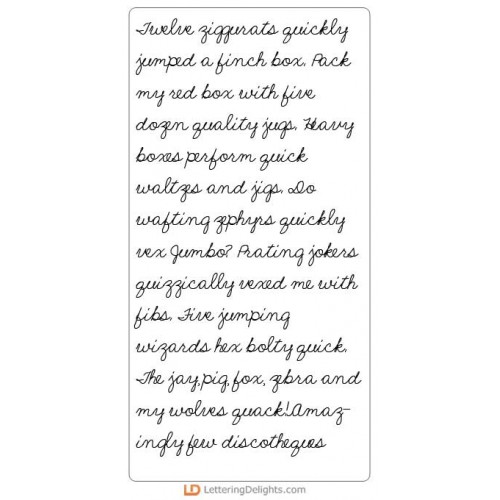 Twelve ziggurats quickly
jumped a finch box. Pack
my red box with five
dozen quality jugs. Heavy
boxes perform quick
waltzes and jigs. Do
wafting zephyrs quickly
vex Jumbo? Prating jokers
quizzically vexed me with
fibs. Five jumping
wizards hex bolty quick.
The jay,pig,fox, zebra and
my wolves quack!Amaz-
ingly few discotheques
LD LetteringDelights.com